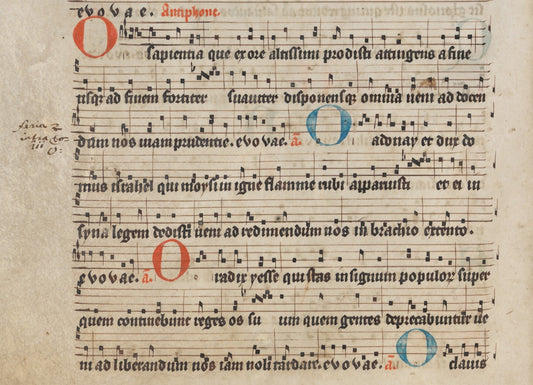 e v o v a e. Antiphone.
O sapientia que ex ore altissimi prodisti attingens a fine
usq; ad finem fortiter suauiter disponensq; omnia ueni ad docen
dum nos uiam prudentie. e v o v ae. a. O adonay et dux do
mus israhel qui moysi in igne flamme rubi apparuisti et ei in
syna legem dedisti ueni ad redimendum nos in brachio extento.
e v o v ae. a. O radix yesse qui stas in signum populor super
quem continebunt reges os su um quem gentes deprecabuntur ue
ni ad liberandum nos iam noli tardare. e v o v ae. a. O clauis
feria 2